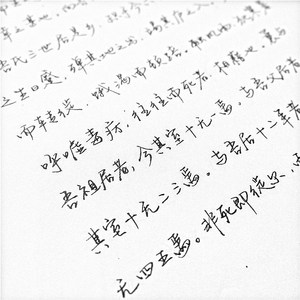 氏三世居是乡，积于今
之生日蹙，殚其地之出，竭其庐之入，
而转徙，饿渴而顿踣。触风雨，犯寒暑
呼嘘毒疠，往往而死者，相藉也。曩与
吾祖居者，今其室十无一焉。与吾父居者
其室十无二三焉。与吾居十二年者
无四五焉。非死即徙尔，而